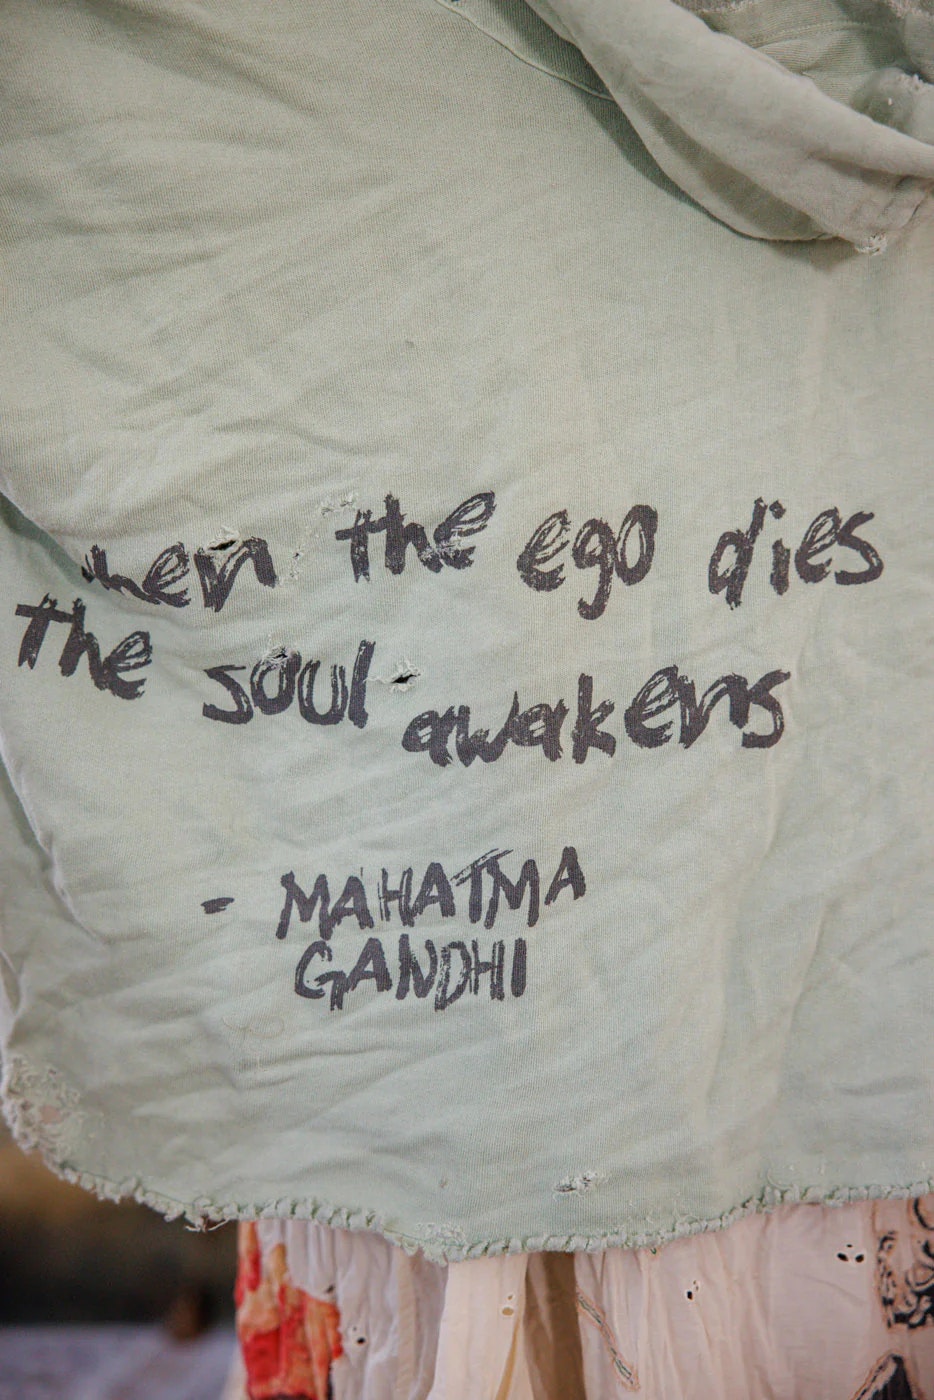 when the ego dies
the soul awakens
- MAHATMA
GANDHI